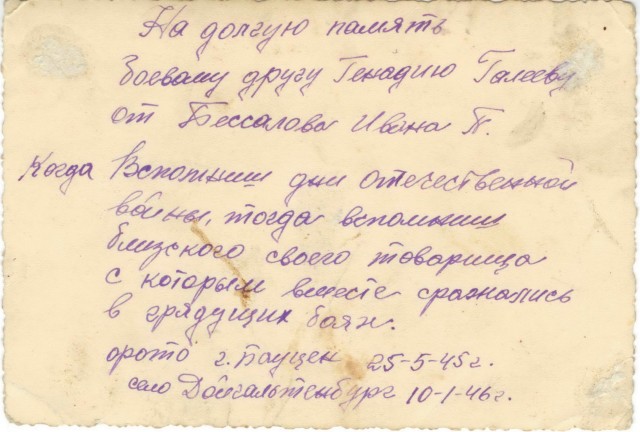 На долгую память
боевому другу Генадию Галееву
от Бессалова Ивана П.
Когда Вспомниш дни отечественной
войны, тогда вспомниш
близского своего товарища
с которым вместе сражались
в грядущих боях.
фото г. Бауцен 25-5-45г.
село Дойгальтенбург 10-1-46г.